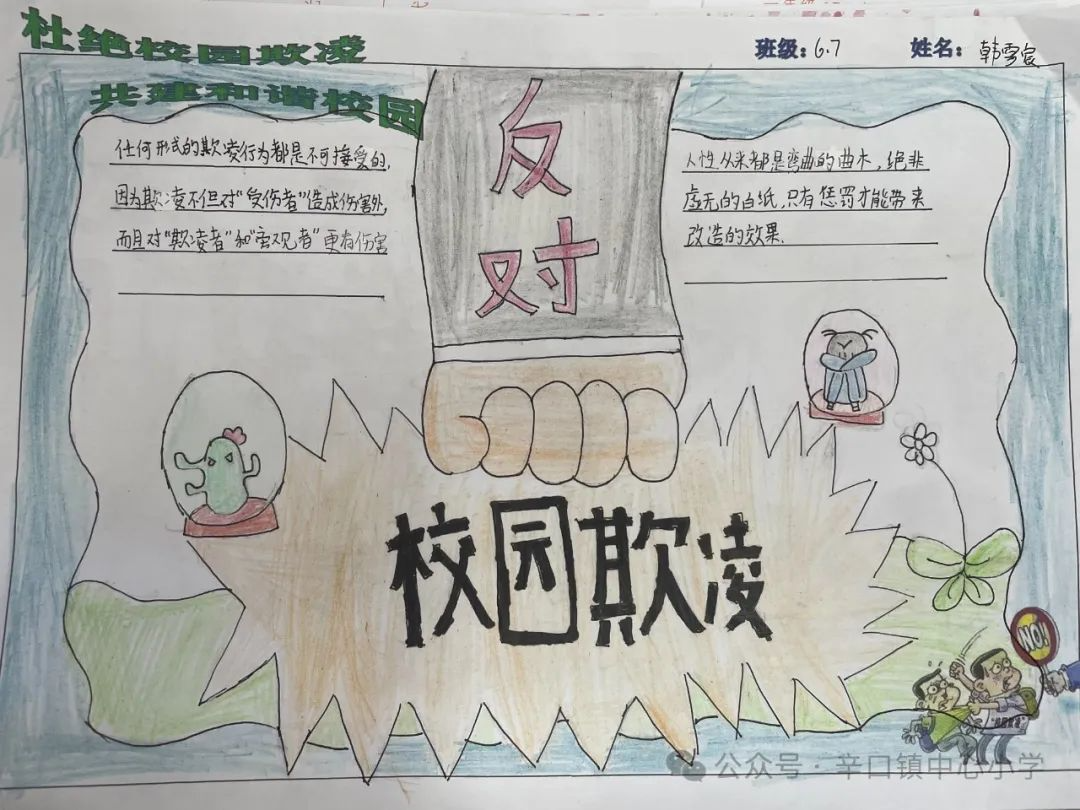 杜绝校园欺凌
共建和谐校园
班级：6.7
姓名：韩雪宸
任何形式的欺凌行为都是不可接受的，
因为欺凌不但对“受伤者”造成伤害外，
而且对“欺凌者”和“旁观者”更有伤害
反
对
人性从来都是弯曲的曲木，绝非
虚无的白纸，只有惩罚才能带来
改造的效果.
校园欺凌
NO!
公众号·辛口镇中心小学